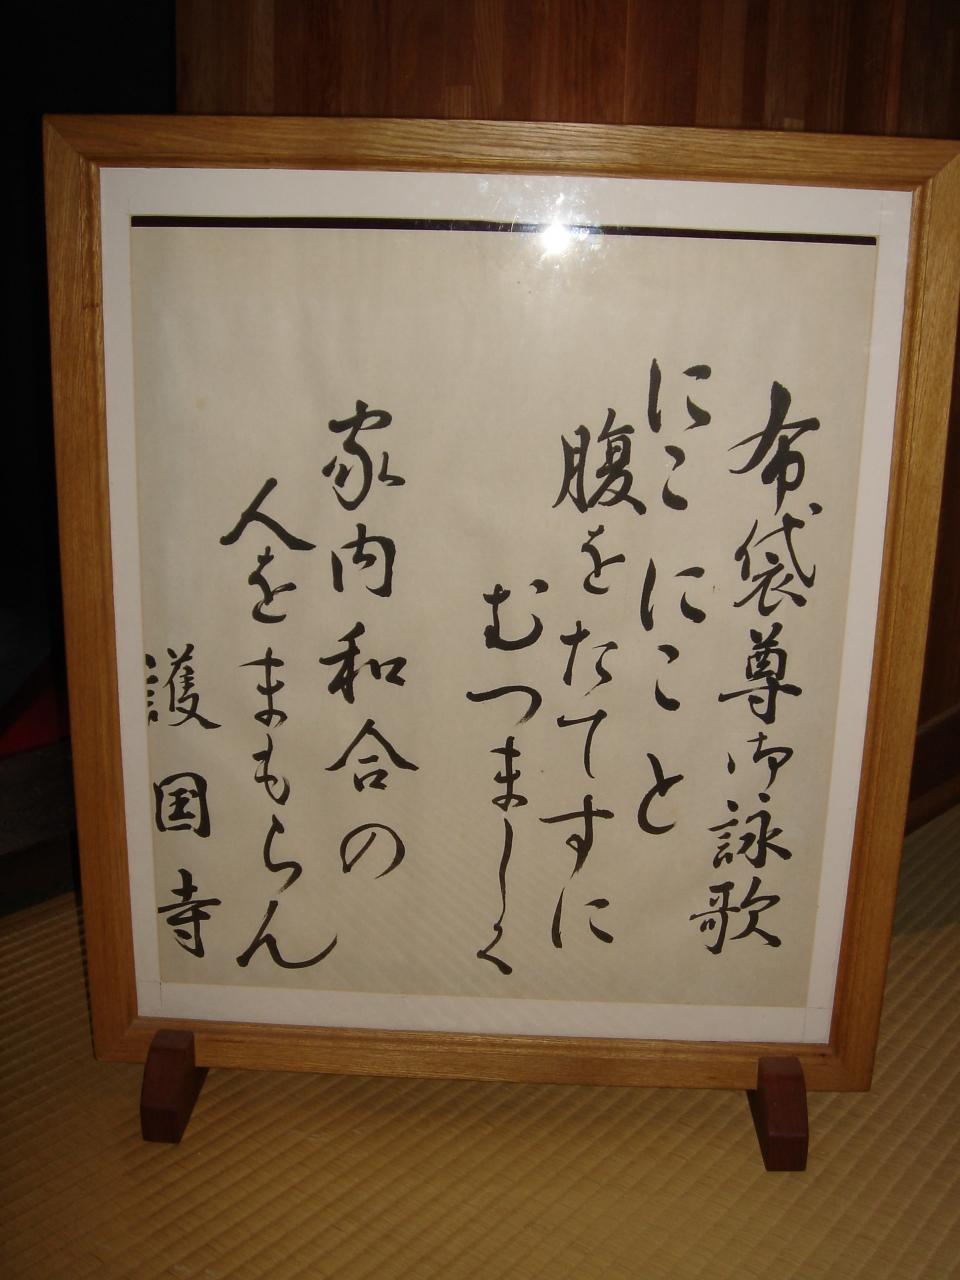 布袋尊御詠歌
にこにこと
腹をたてすに
むつましく
家内和合の
人をまもらん
護国寺